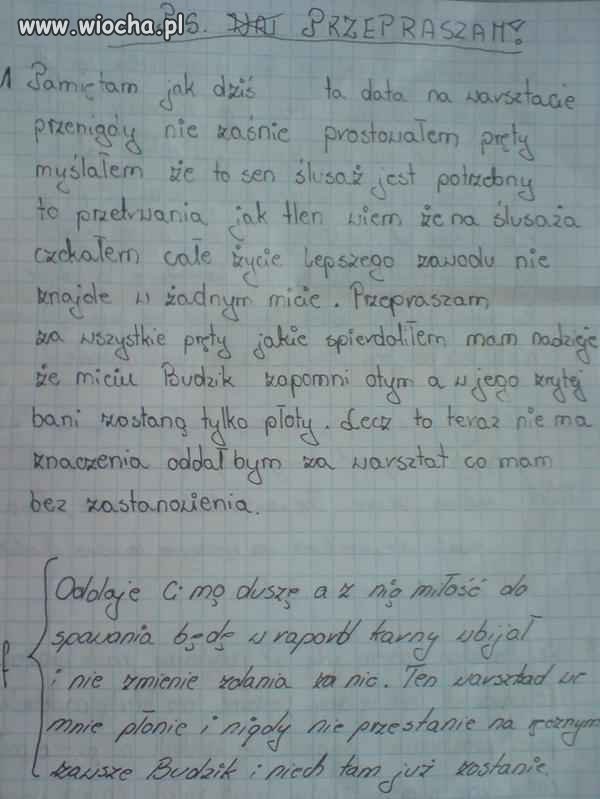 www.wiocha.pl
PRZEPRASZAM!
1 Pamiętam jak dziś ta data na warsztacie
przenigdy nie zaśnie prostowałem pręty
myślałem że to sen ślusaż jest potrzebny
to przetrwania jak tlen wiem że na ślusaża
czekałem całe życie lepszego zawodu nie
znajde w żadnym micie. Przepraszam
za wszystkie pręty jakie spierdoliłem mam nadzieje
że miciu Budzik zapomni otym a w jego zrytej
bani zostaną tylko płoty. Lecz to teraz nie ma
znaczenia oddał bym za warsztat co mam
bez zastanowienia.
Oddaje Ci mą duszę a z nią miłość do
spawania będę w raport karny wbijał
i nie zmienie zdania za nic. Ten warsztad we
mnie płonie i nigdy nie przestanie na ręcznym
zawsze Budzik i niech tam już zostanie.